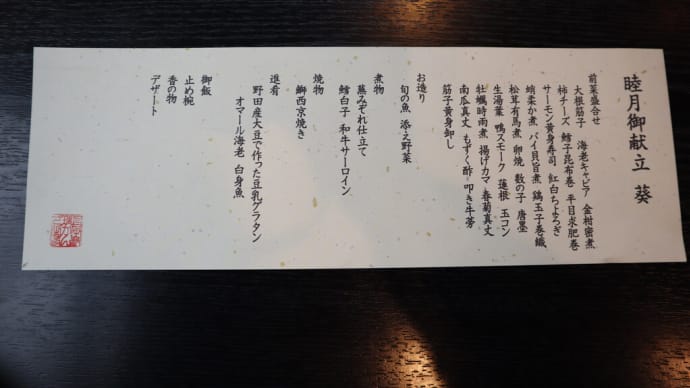 睦月御献立 葵
前菜盛合せ
大根筋子 海老キャビア 金柑密煮
柿チーズ 鱈子昆布巻 平目求肥巻
サーモン黄身寿司 紅白ちょろぎ
蛸柔か煮 バイ貝旨煮 鶏玉子巻繊
松茸有馬煮 卵焼 数の子 唐墨
生湯葉 鴨スモーク 蓮根 玉コン
牡蠣時雨煮 揚げカマ 春菊真丈
南瓜真丈 もずく酢 叩き牛蒡
筋子黄身卸し
お造り
旬の魚 添え野菜
煮物
蕪みぞれ仕立て
鱈白子 和牛サーロイン
焼物
鰤西京焼き
進肴
野田産大豆で作った豆乳グラタン
オマール海老 白身魚
御飯
止め椀
香の物
デザート